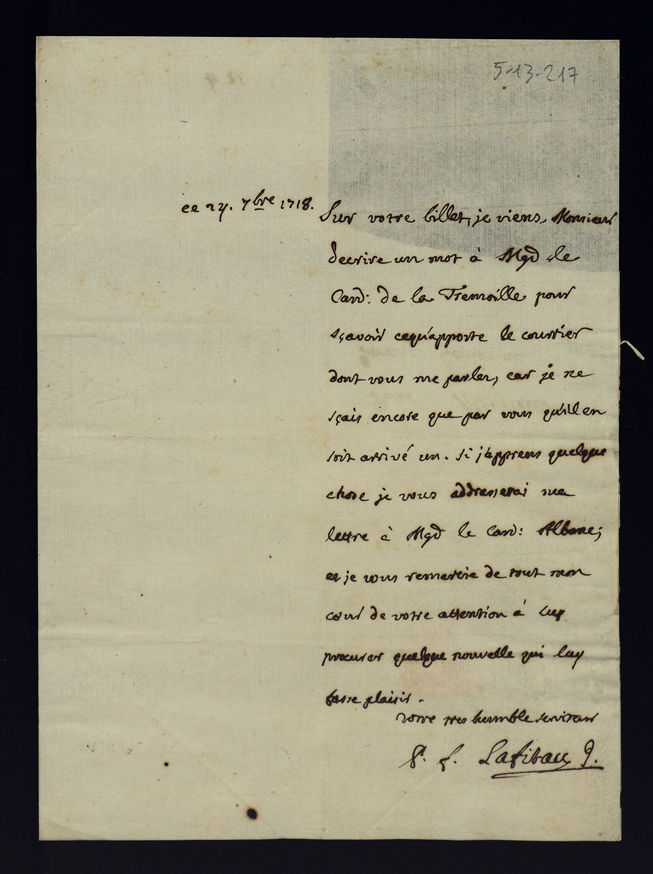 5-13-217
ce 27. 7bre 1718.
Sur votre billet, je viens, Monsieur
decrire un mot à Mgr le
Card: de la Tremoille pour
sçavoir cequ'apporte le courrier
dont vous me parlez, car je ne
sçais encore que par vous qu'il en
soit arrivé un. Si j'apprens quelque
chose je vous addresserai ma
lettre à Mgr le Card: Albane;
et je vous remercie de tout mon
cœur de votre attention à luy
procurer quelque nouvelle qui luy
fasse plaisir.
votre tres humble serviteur
P. f. Lafitau J.